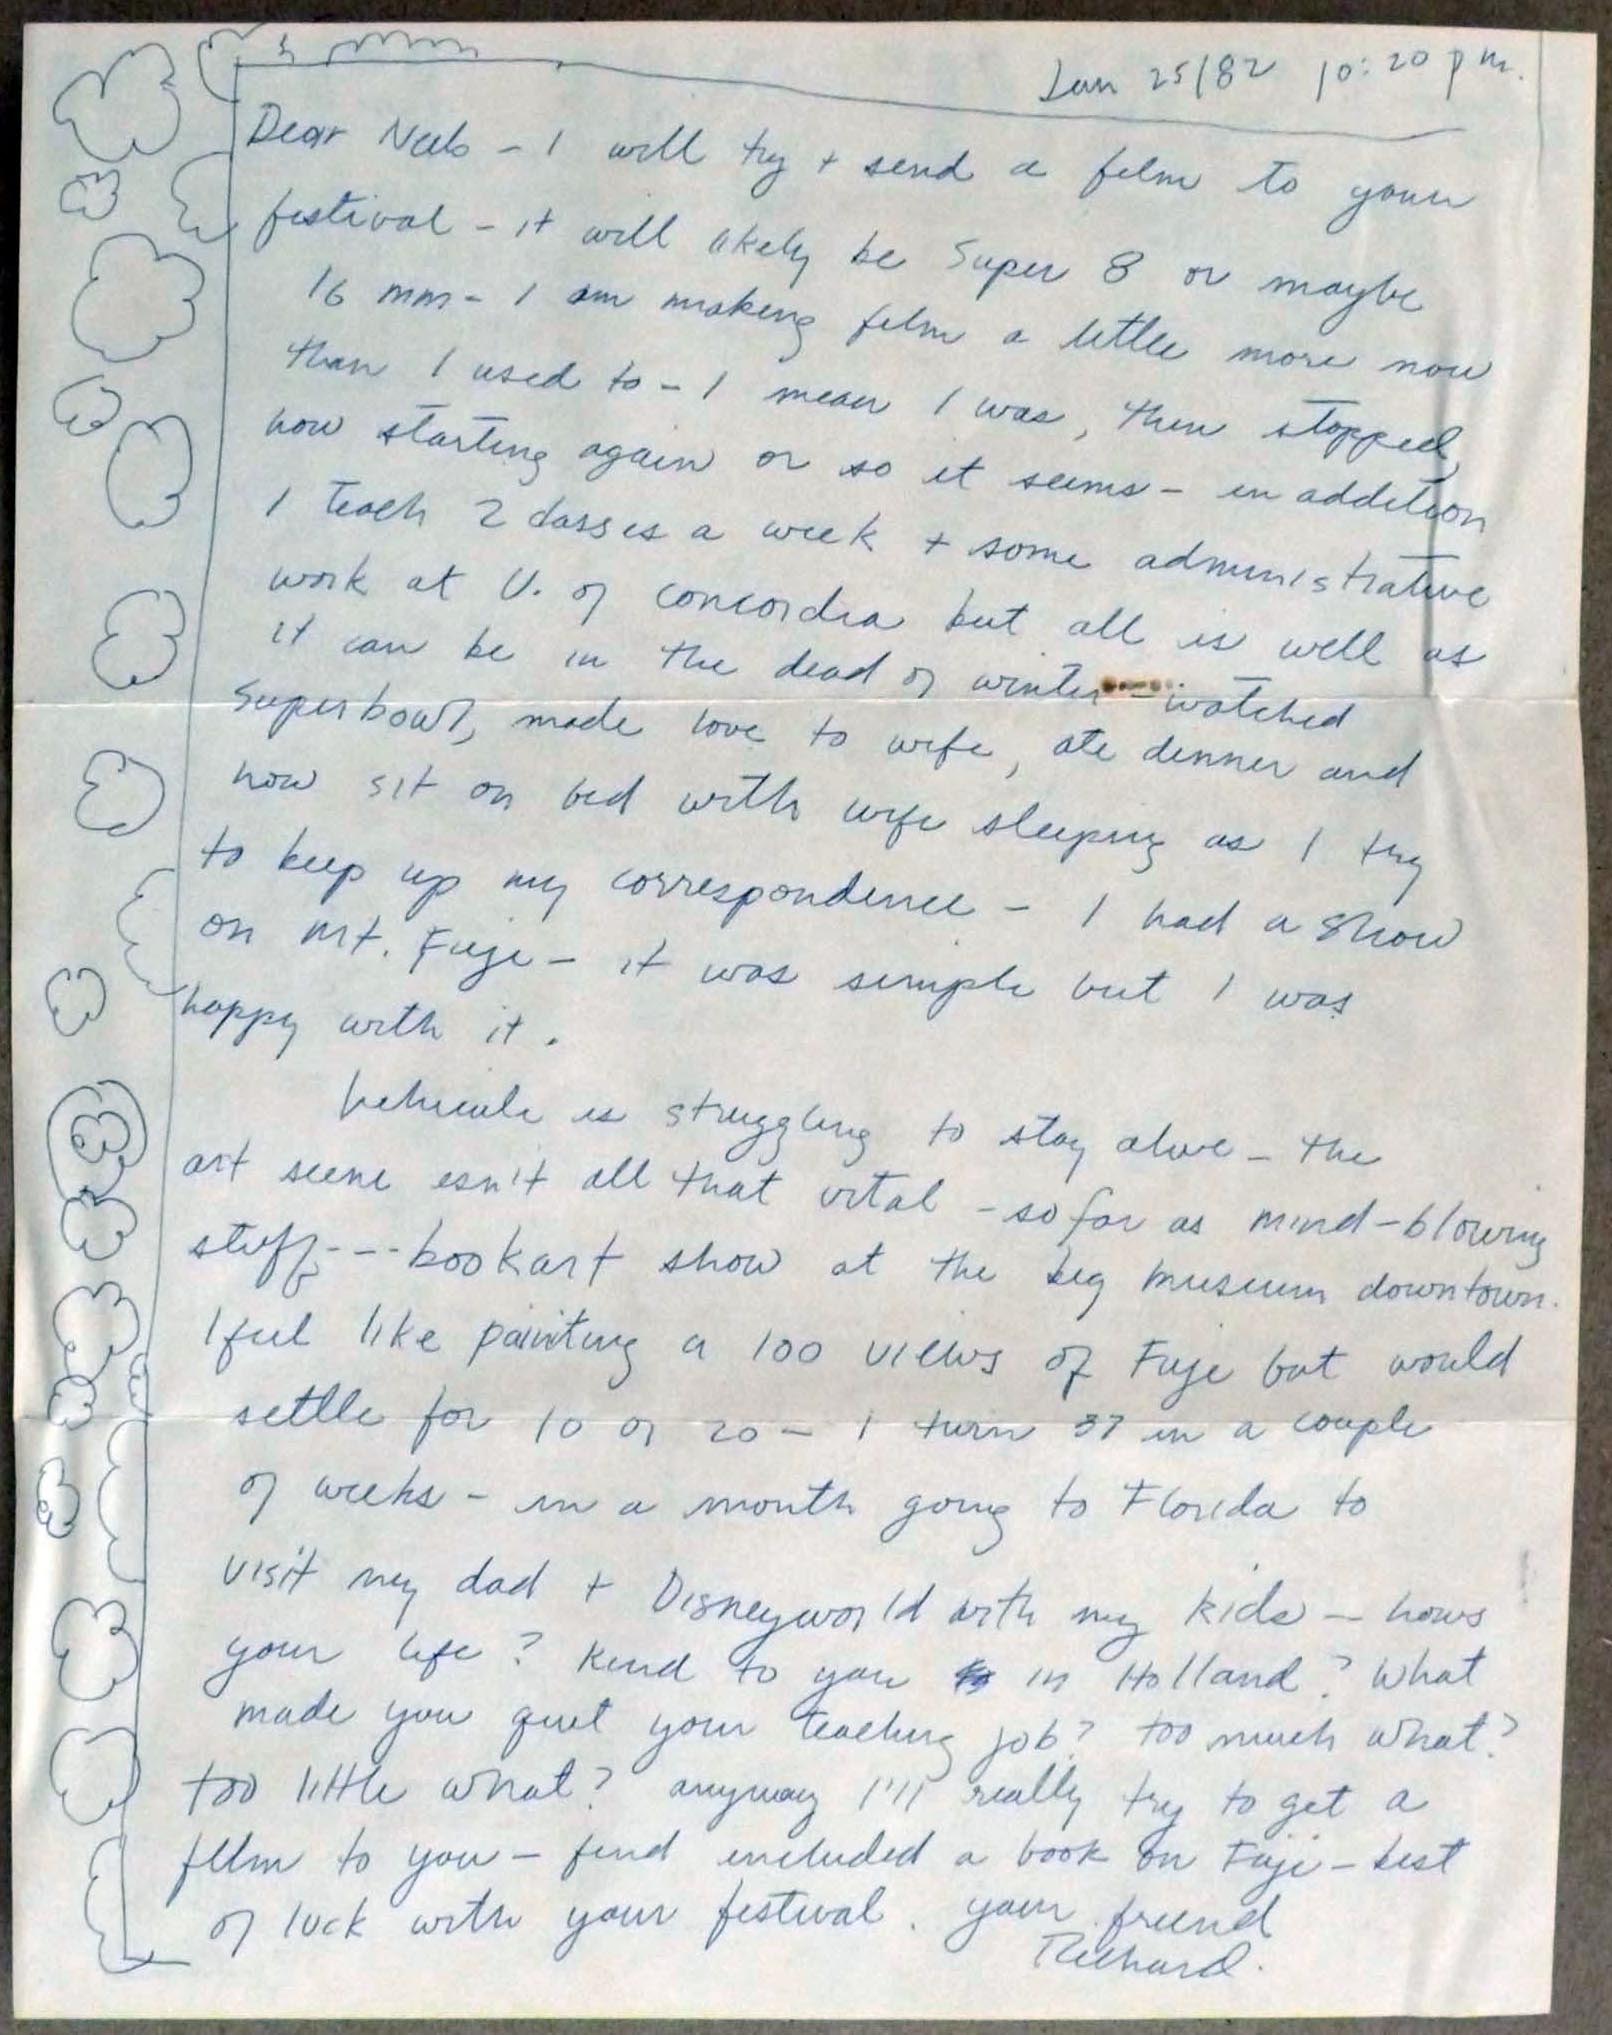 Jan 25/82 10:20 pm.
Dear Neils - I will try + send a film to your
festival - it will likely be Super 8 or maybe
16 mm - I am making film a little more now
than I used to - I mean I was, then stopped,
now starting again or so it seems - in addition
I teach 2 classes a week + some administrative
work at U. of Concordia but all is well as
it can be in the dead of winter - watched
Superbowl, made love to wife, ate dinner and
now sit on bed with wife sleeping as I try
to keep up my correspondence - I had a show
on Mt. Fuji - it was simple but I was
happy with it.
Vehicule is struggling to stay alive - the
art scene isn't all that vital - so far as mind-blowing
stuff --- bookart show at the big museum downtown.
I feel like painting a 100 views of Fuji but would
settle for 10 or 20 - I turn 37 in a couple
of weeks - in a month going to Florida to
visit my dad + Disneyworld with my kids - hows
your life? Kind to you in Holland? What
made you quit your teaching job? too much what?
too little what? anyway I'll really try to get a
film to you - find included a book on Fuji - best
of luck with your festival. your friend
Richard.